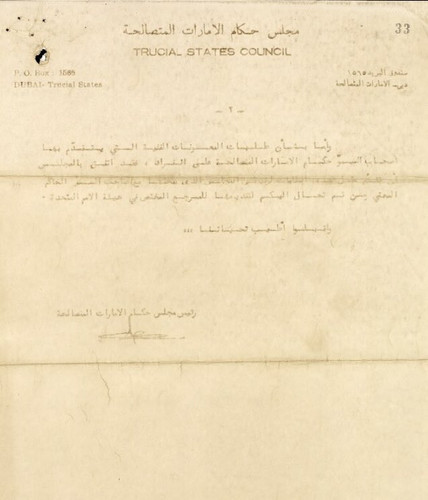 33
مجلس حكام الامارات المتصالحة
TRUCIAL STATES COUNCIL
P. O. Box : 1585
DUBAI- Trucial States
صندوق البريد ١٥٨٥
دبي - الامارات المتصالحة
- ٢ -
وأما بشأن طلبات المعونات الفنية التي يتقدم بها
أصحاب السمو حكام الامارات المتصالحة على انفراد ، فقد اتفق بالمجلس
المعني ومن ثم تحال اليكم لتقديمها للمرجع المختص في هيئة الامم المتحدة .
واقبلوا أطيب تحياتنا ،،،
رئيس مجلس حكام الامارات المتصالحة